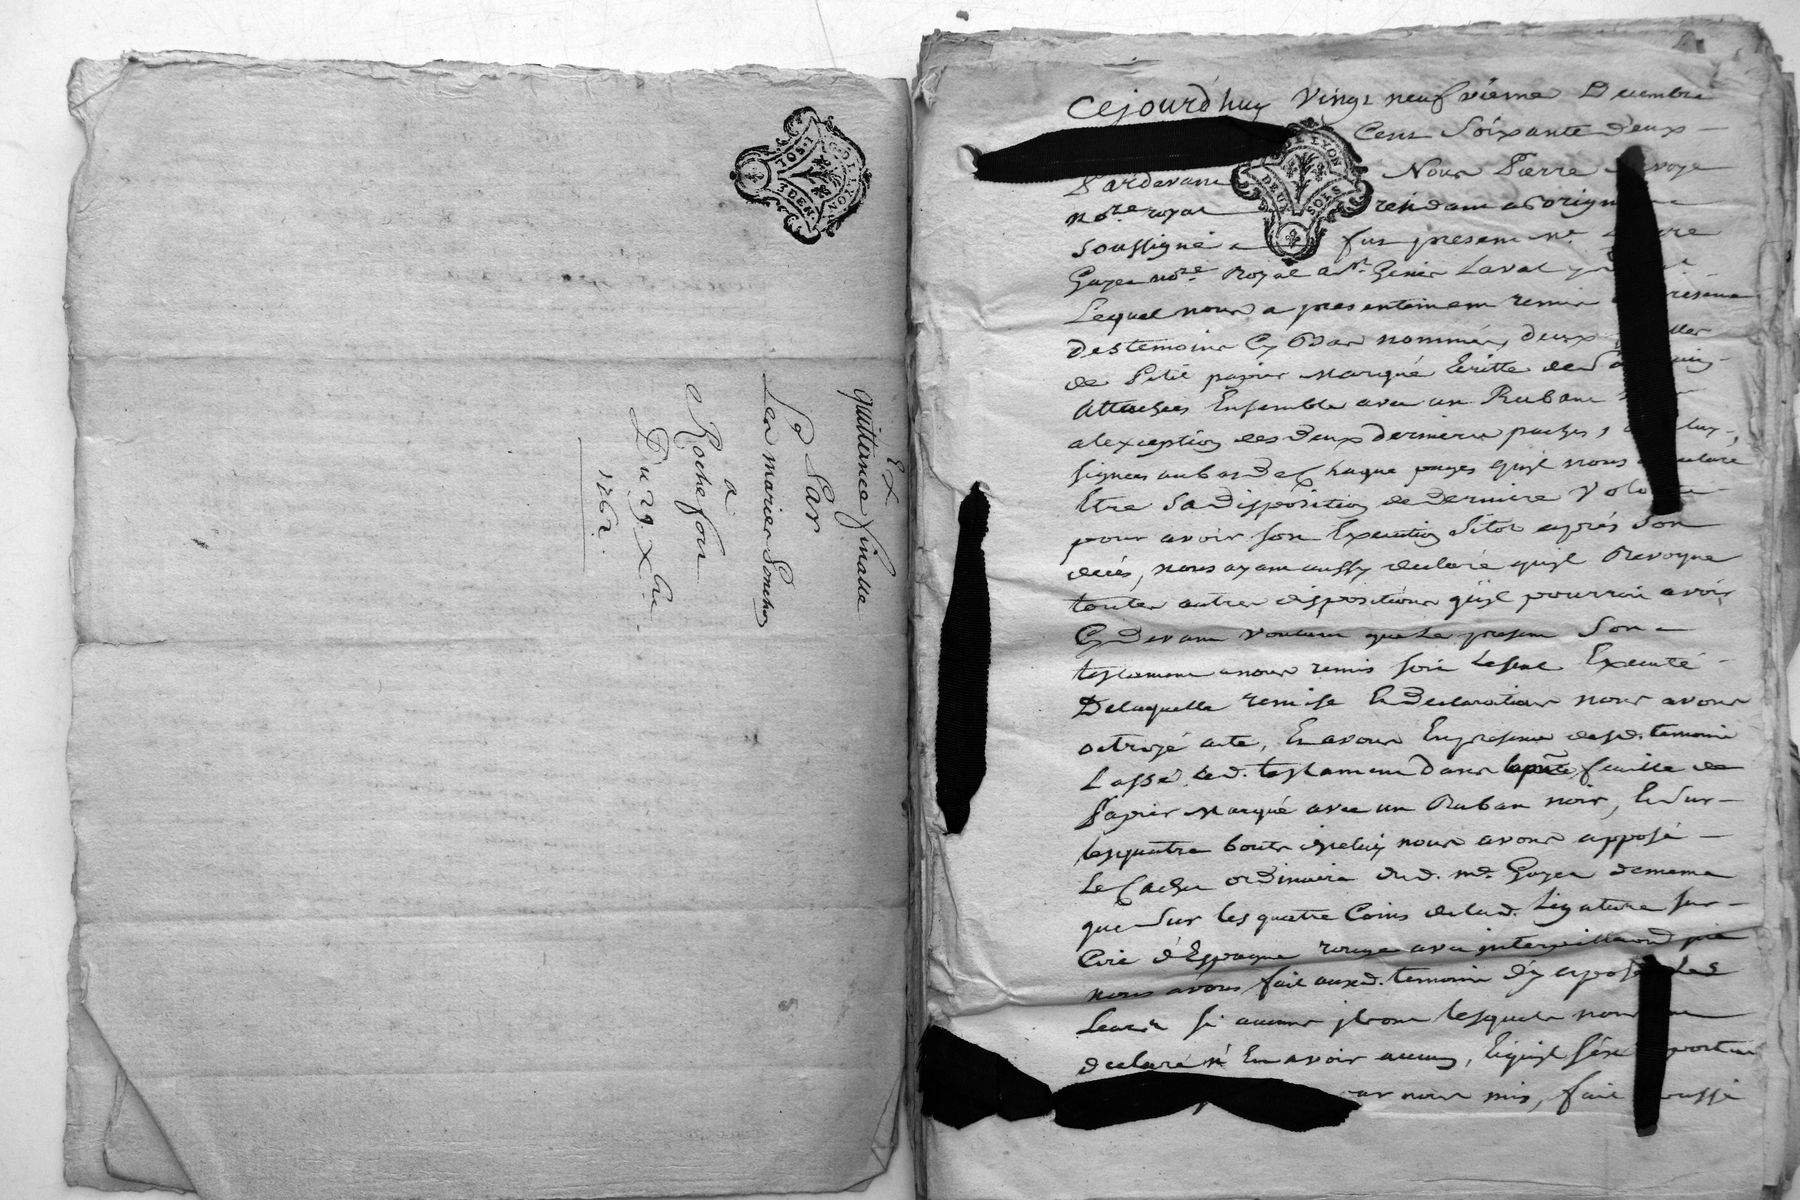 1.SOL
3DEN
GN. LYON
Ex
quittance finalle
Par
La marie Ponchon
a
Rochefort
Du 29 Xbre
1762.
Cejourd'huy vingt neufvième Decembre
Cent Soixante deux
LYON
DEUX SOLS
Pardevant Nous Pierre
Nore royal
Soussigné fut present Me
Guyot nore Royal a St. Genis Laval
Lequel nous a presentement remis
des temoins Cy Bas nommés, deux
de Petit papier Marqué Ecritte de
Attachées Ensemble avec un Ruban
a lexception des deux dernieres pages,
signées au bas de Chaque pages qu'jl nous a declaré
Etre Sa disposition de derniere Volonté
pour avoir son Execution Sitot après Son
decés, nous ayant aussy declaré qu'jl Revoque
toutes autres dispositions qu'jl pourroit avoir
Cy Devant voulant que Le present Son
testament a nous remis soit Le seul Executé
De laquelle remise & declaration nous avons
octroyé acte, Et avons En presence desd. temoins
Lassé led. testament dans la pnte feuille de
Papier Marqué avec un Ruban noir, & Sur
les quatre bouts diceluy nous avons apposé
Le Cachet ordinaire dud. me. Guyot de meme
que Sur les quatre Coins de lad. Ligature sur
Cire d'Espagne rouge avec interpellation que
nous avons fait auxd. temoins d'y aposer Les
Leurs si aucuns jls ont lesquels nous ont
declaré n'En avoir aucun, & qu'jl
par nous mis, fait & passé